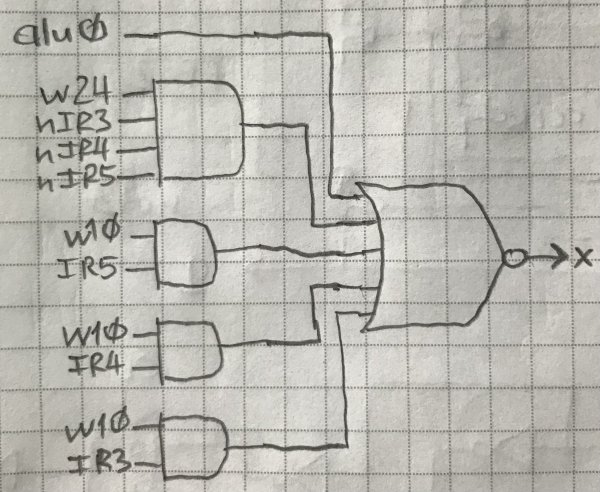 alu0
W24
nIR3
nIR4
nIR5
W10
IR5
W10
IR4
W10
IR3
X